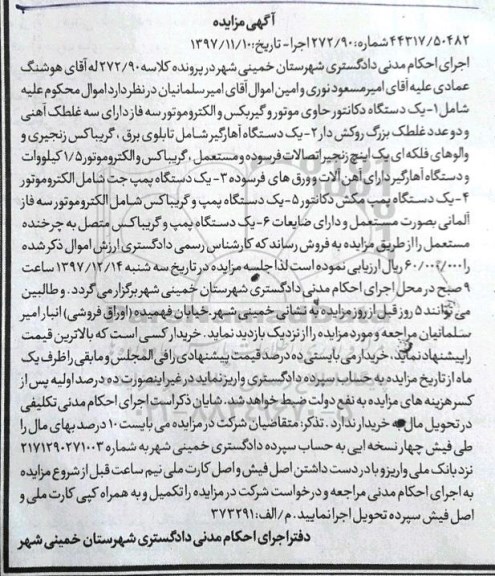 آگهی مزایده
۴۴۳۱۷/۵۰۴۸۲ شماره: ۲۷۲/۹۰ اجرا - تاریخ: ۱۳۹۷/۱۱/۱۰
اجرای احکام مدنی دادگستری شهرستان خمینی شهر در پرونده کلاسه ۲۷۲/۹۰ له آقای هوشنگ
عمادی علیه آقای امیر مسعود نوری و امین اموال آقای امیر سلمانیان در نظر دارد اموال محکوم علیه
شامل ۱- یک دستگاه دکانتور حاوی موتور و گیربکس و الکتروموتور سه فاز دارای سه غلطک آهنی
و دو عدد غلطک بزرگ روکش دار ۲- یک دستگاه آهارگیر شامل تابلوی برق ، گریباکس زنجیری و
والوهای فلکه ای یک اینچ زنجیر اتصالات فرسوده و مستعمل ، گریباکس و الکتروموتور ۱/۵ کیلووات
و دستگاه آهارگیر دارای آهن آلات و ورق های فرسوده ۳- یک دستگاه پمپ جت شامل الکتروموتور
۴- یک دستگاه پمپ مکش دکانتور ۵- یک دستگاه پمپ و گریباکس شامل الکتروموتور سه فاز
آلمانی بصورت مستعمل و دارای ضایعات ۶- یک دستگاه پمپ و گریباکس متصل به چرخنده
مستعمل را از طریق مزایده به فروش رساند که کارشناس رسمی دادگستری ارزش اموال ذکر شده
را ۶۰/۰۰۰/۰۰۰ ریال ارزیابی نموده است لذا جلسه مزایده در تاریخ سه شنبه ۱۳۹۷/۱۲/۱۴ ساعت
۹ صبح در محل اجرای احکام مدنی دادگستری شهرستان خمینی شهر برگزار می گردد. و طالبین
می توانند ۵ روز قبل از روز مزایده به نشانی خمینی شهر. خیابان فهمیده (اوراق فروشی) انبار امیر
سلمانیان مراجعه و مورد مزایده را از نزدیک بازدید نماید. خریدار کسی است که بالاترین قیمت
را پیشنهاد نماید. خریدار می بایستی ده درصد قیمت پیشنهادی را فی المجلس و مابقی را ظرف یک
ماه از تاریخ مزایده به حساب سپرده دادگستری واریز نماید در غیر اینصورت ده درصد اولیه پس از
کسر هزینه های مزایده به نفع دولت ضبط خواهد شد. شایان ذکر است اجرای احکام مدنی تکلیفی
در تحویل مال به خریدار ندارد. تذکر: متقاضیان شرکت در مزایده می بایست ۱۰ درصد بهای مال را
طی فیش چهار نسخه ایی به حساب سپرده دادگستری خمینی شهر به شماره ۲۱۷۱۲۹۰۲۷۱۰۰۳
نزد بانک ملی واریز و با در دست داشتن اصل فیش و اصل کارت ملی نیم ساعت قبل از شروع مزایده
به اجرای احکام مدنی مراجعه و درخواست شرکت در مزایده را تکمیل و به همراه کپی کارت ملی و
اصل فیش سپرده تحویل اجرا نمایید. م/الف: ۳۷۳۲۹۱
دفتر اجرای احکام مدنی دادگستری شهرستان خمینی شهر